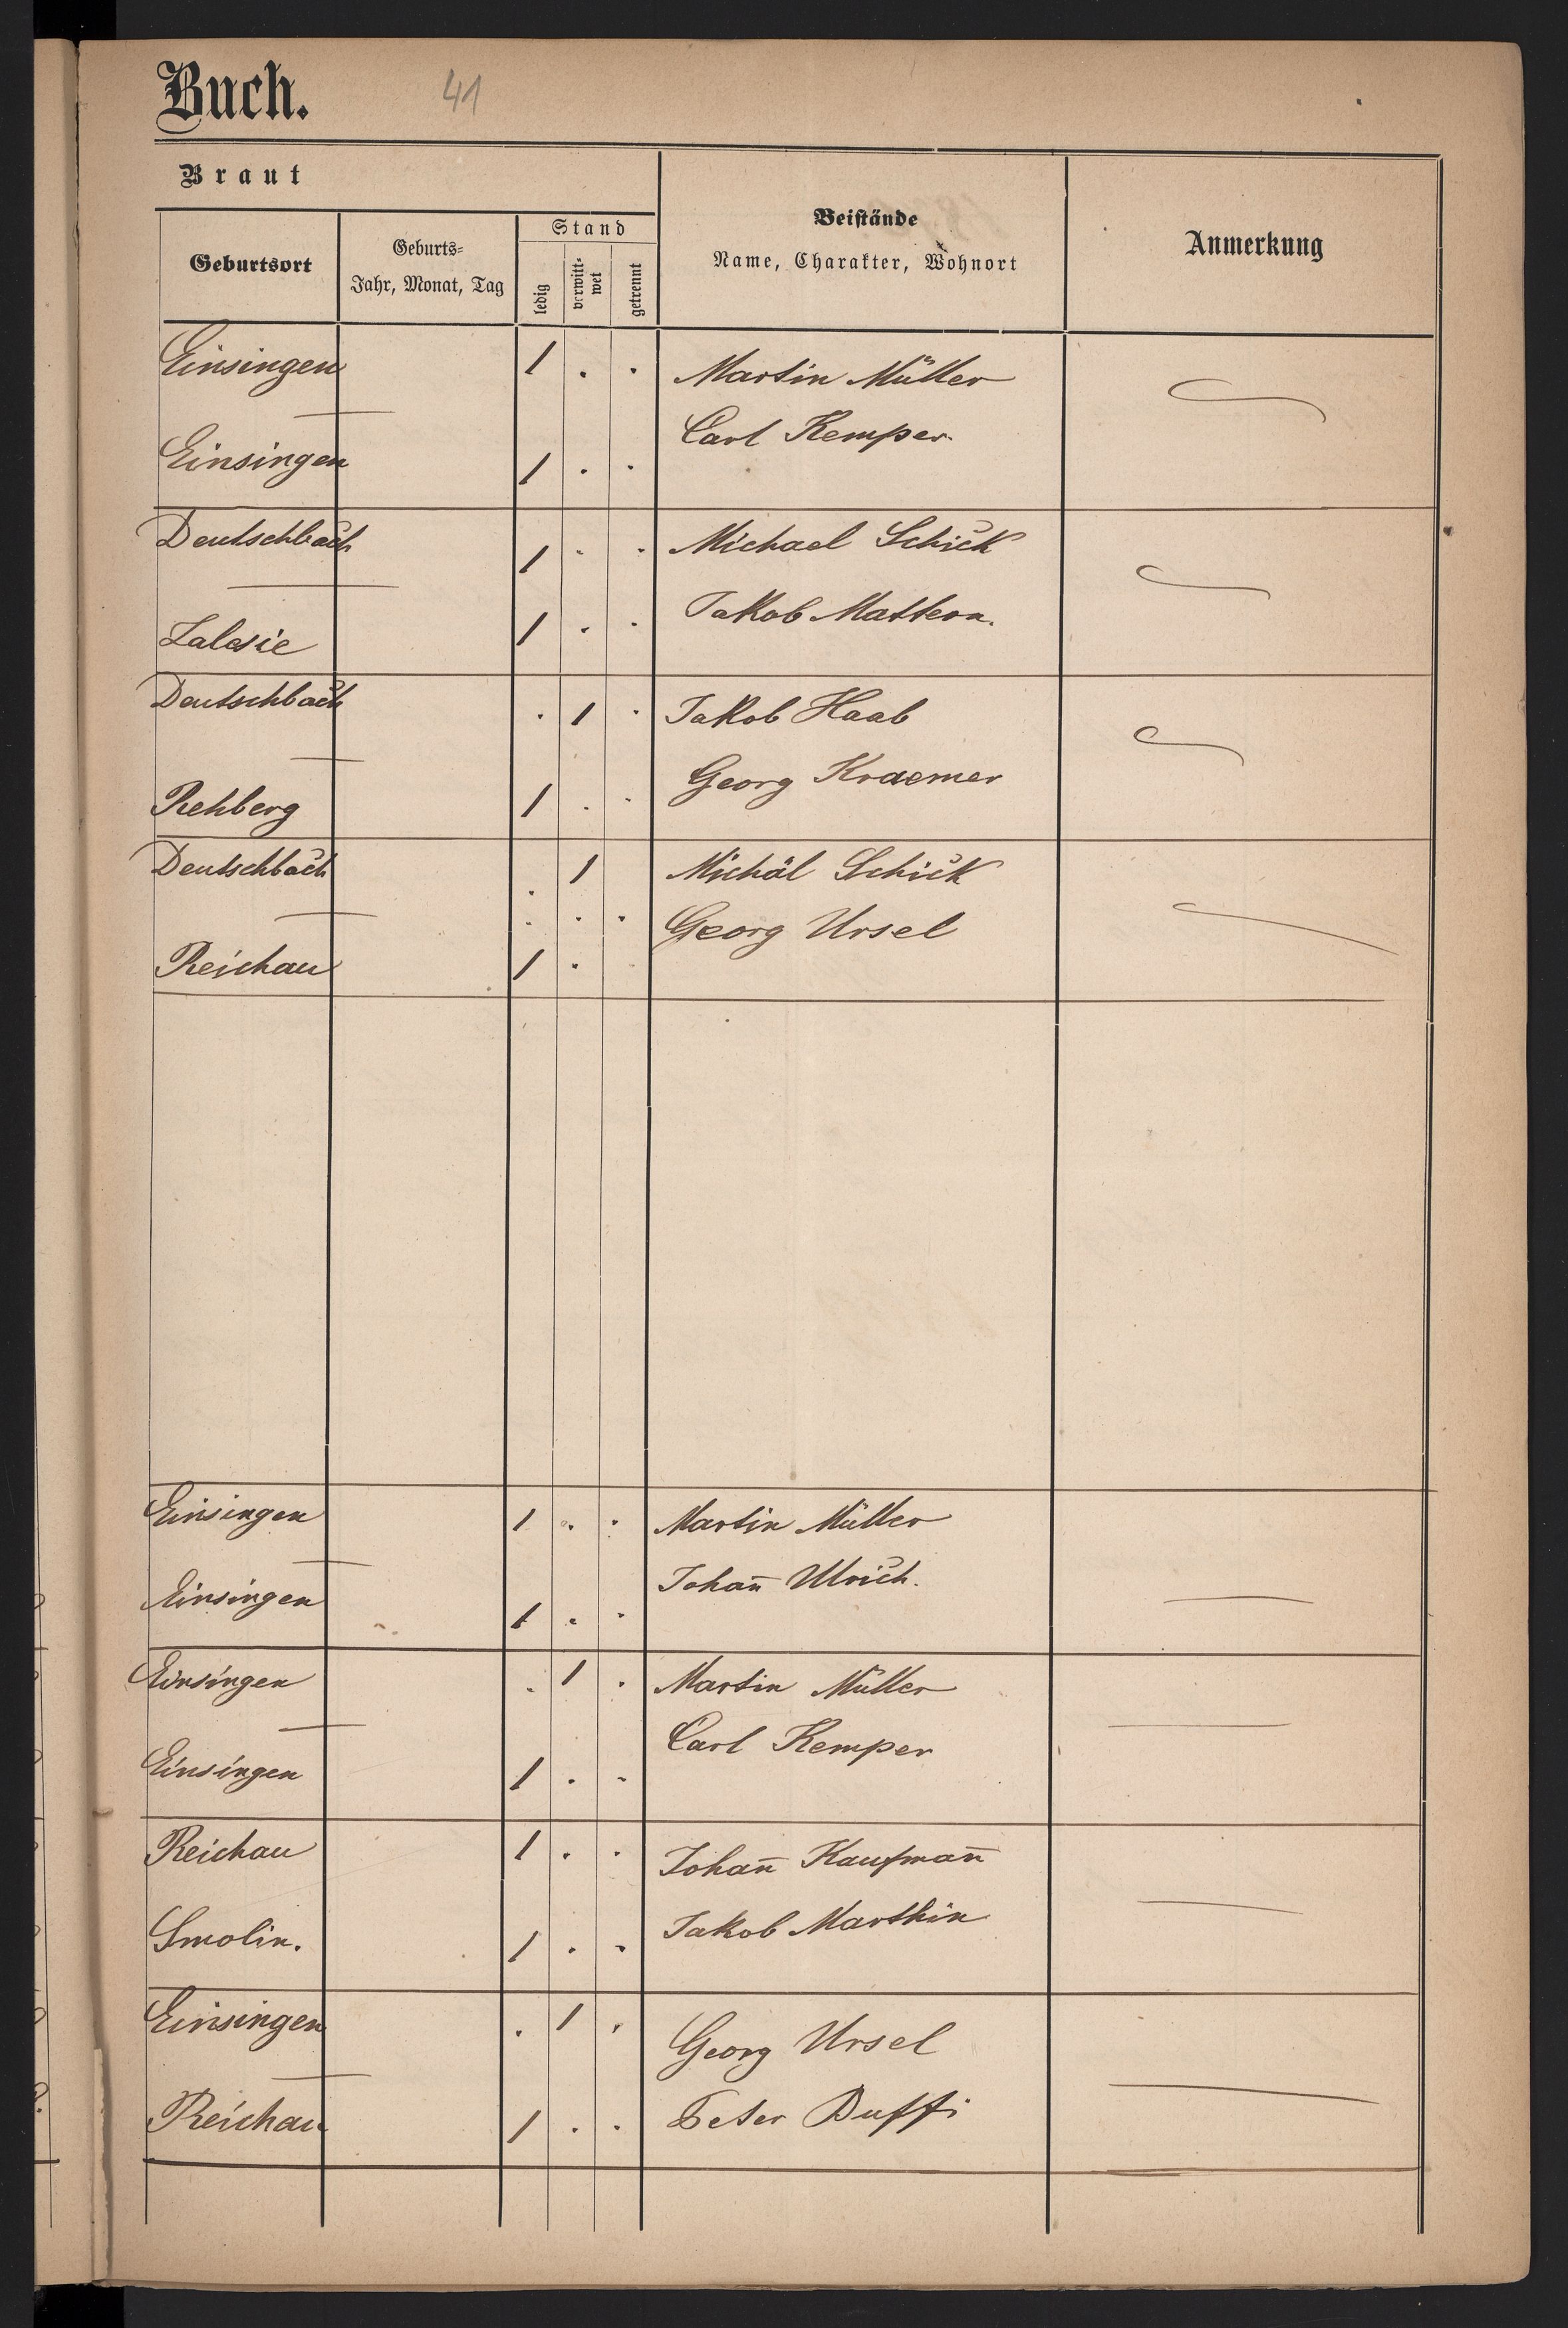 Buch.
41
Braut
Geburtsort
Geburts-
Jahr, Monat, Tag
Stand
ledig
verwitt-
wet
getrennt
Beistände
Name, Charakter, Wohnort
Anmerkung
Einsingen 1 . . Martin Müller
Carl Kemper
Einsingen 1 . .
Deutschbach 1 . . Michael Schick
Jakob Mattern.
Zalesie 1 . .
Deutschbach . 1 . Jakob Haab
Georg Kraemer
Rehberg 1 . .
Deutschbach . 1 Michäl Schick
. . . Georg Ursel
Reichau 1 .
Einsingen 1 . . Martin Müller
Johan̄ Ulrich.
Einsingen 1 . .
Einsingen . 1 . Martin Müller
Carl Kemper
Einsingen 1 . .
Reichau 1 . . Johan̄ Kaufman̄
Jakob Marthin
Smolin. 1 . .
Einsingen . 1 . Georg Ursel
Peter Buffi
Reichau 1 . .